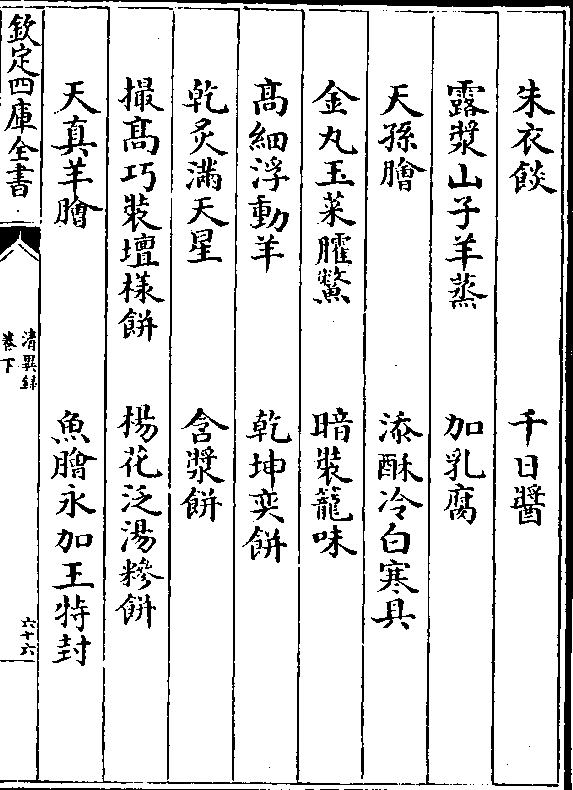 朱衣餤　千日醬
露漿山子羊蒸　加乳腐
天孫膾　添酥冷白寒具
金丸玉菜臛鱉　暗裝籠味
高細浮動羊　乾坤奕餅
乾炙滿天星　含漿餅
撮高巧裝壇樣餅　楊花泛湯糝餅
天真羊膾　魚膾永加王特封
欽定四庫全書
清異錄
卷下
六十六